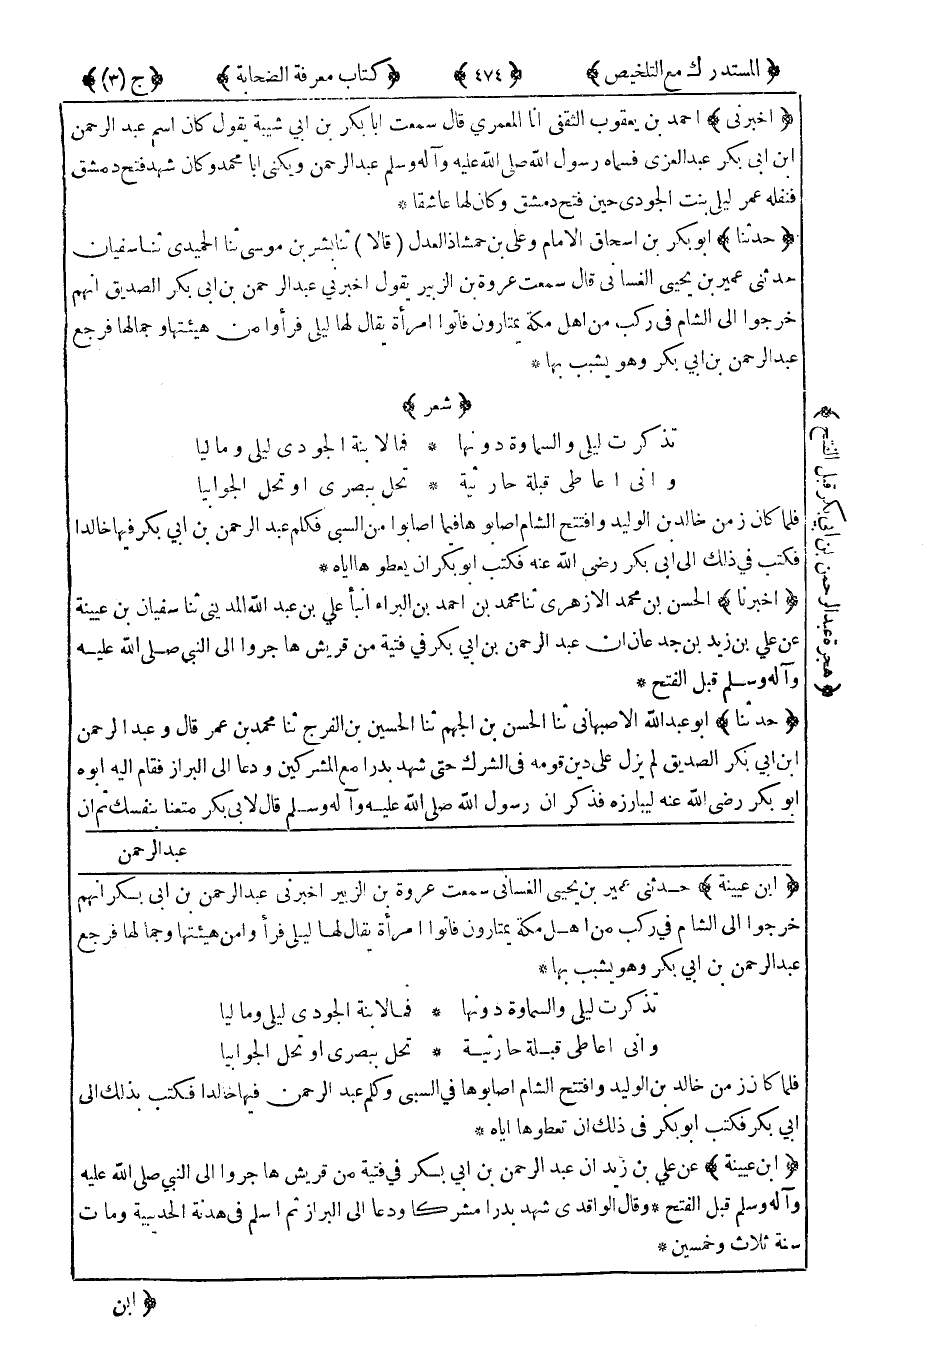 ﴿ المستدرك مع التلخيص ﴾ ﴿ ٤٧٤ ﴾ ﴿ كتاب معرفة الصحابة ﴾ ﴿ ج (٣) ﴾
﴿ اخبرنى ﴾ احمد بن يعقوب الثقفى انا المعمري قال سمعت ابا بكر بن ابي شيبة يقول كان اسم عبد الرحمن
ابن ابى بكر عبدالعزى فسماه رسول الله صلى الله عليه وآله وسلم عبدالرحمن ويكنى ابا محمد وكان شهد فتح دمشق
فنفله عمر ليلى بنت الجودى حين فتح دمشق وكان لها عاشقا *
﴿ حدثنا ﴾ ابو بكر بن اسحاق الامام وعلى بن حمشاذ العدل ( قالا ) ثنا بشر بن موسى ثنا الحميدى ثنا سفيان
حدثنى عمير بن يحيى الغسانى قال سمعت عروة بن الزبير يقول اخبرني عبدالرحمن بن ابى بكر الصديق انهم
خرجوا الى الشام فى ركب من اهل مكة يمتارون فاتوا امرأة يقال لها ليلى فرأوا من هيئتها وجمالها فرجع
عبدالرحمن بن ابي بكر وهو يشبب بها *
﴿ شعر ﴾
تذكرت ليلى والسماوة دونها * فمالابنة الجودى ليلى وماليا
وانى اعاطى قبلة حارثية * تحل ببصرى او تحل الجوابيا
فلما كان زمن خالد بن الوليد وافتتح الشام اصابوها فيما اصابوا من السبى فكلم عبد الرحمن بن ابي بكر فيها خالدا
فكتب في ذلك الى ابى بكر رضى الله عنه فكتب ابو بكر ان يعطوها اياه *
﴿ اخبرنا ﴾ الحسن بن محمد الازهرى ثنا محمد بن احمد بن البراء انبأ علي بن عبد الله المديني ثنا سفيان بن عيينة
عن علي بن زيد بن جدعان ان عبد الرحمن بن ابي بكر في فتية من قريش هاجروا الى النبي صلى الله عليه
وآله وسلم قبل الفتح *
﴿ حدثنا ﴾ ابو عبدالله الاصبهانى ثنا الحسن بن الجهم ثنا الحسين بن الفرج ثنا محمد بن عمر قال وعبد الرحمن
ابن ابي بكر الصديق لم يزل على دين قومه فى الشرك حتى شهد بدرا مع المشركين ودعا الى البراز فقام اليه ابوه
ابو بكر رضى الله عنه ليبارزه فذكر ان رسول الله صلى الله عليه وآله وسلم قال لابى بكر متعنا بنفسك ثم ان
عبدالرحمن
﴿ ابن عيينة ﴾ حدثنى عمير بن يحيى الغسانى سمعت عروة بن الزبير اخبرنى عبدالرحمن بن ابى بكر انهم
خرجوا الى الشام في ركب من اهل مكة يمتارون فاتوا امرأة يقال لها ليلى فرأوا من هيئتها وجمالها فرجع
عبدالرحمن بن ابي بكر وهو يشبب بها *
تذكرت ليلى والسماوة دونها * فمالابنة الجودى ليلى وماليا
وانى اعاطى قبلة حارثية * تحل ببصرى او تحل الجوابيا
فلما كان زمن خالد بن الوليد وافتتح الشام اصابوها في السبى وكلم عبد الرحمن فيها خالدا فكتب بذلك الى
ابي بكر فكتب ابو بكر فى ذلك ان تعطوها اياه *
﴿ ابن عيينة ﴾ عن علي بن زيد ان عبد الرحمن بن ابي بكر في فتية من قريش هاجروا الى النبي صلى الله عليه
وآله وسلم قبل الفتح * وقال الواقدى شهد بدرا مشركا ودعا الى البراز ثم اسلم فى هدنة الحديبية ومات
سنة ثلاث وخمسين *
﴿ ابن
﴿ هجرة عبدالرحمن بن ابى بكر قبل الفتح ﴾